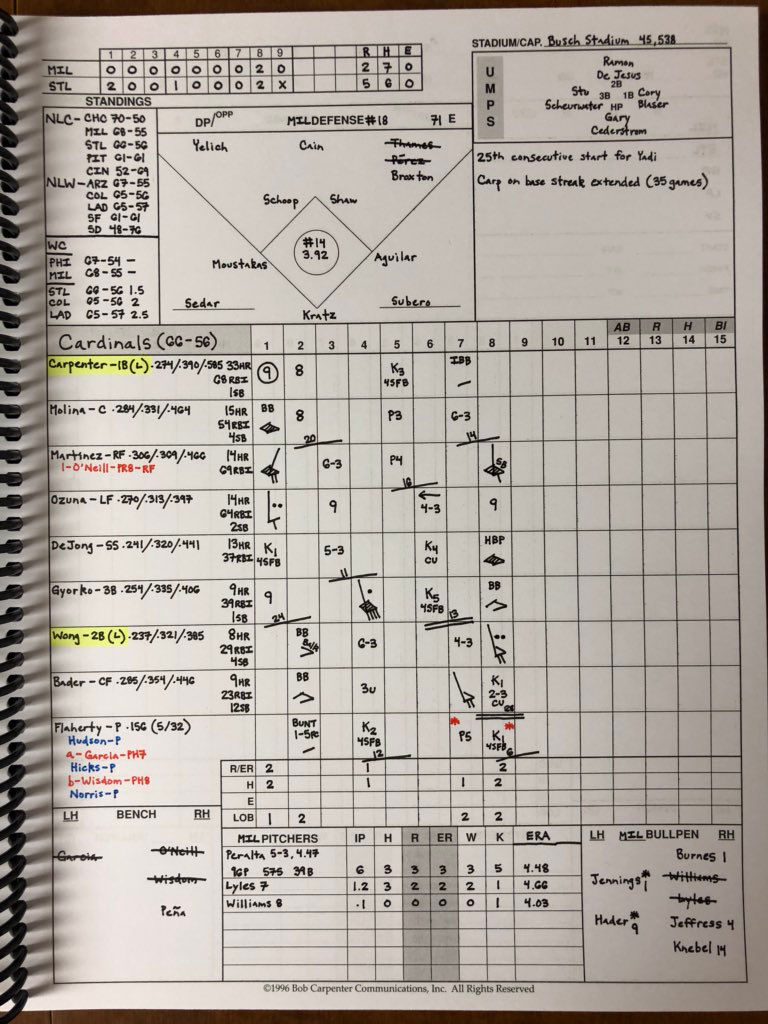 STADIUM/CAP. Busch Stadium 45,538
1 2 3 4 5 6 7 8 9 R H E
MIL 0 0 0 0 0 0 0 2 0 2 7 0
STL 2 0 0 1 0 0 0 2 X 5 6 0
UMPS
Ramon
De Jesus
2B
Stu 3B 1B Cory
Scheurwater HP Blaser
Gary
Cederstrom
STANDINGS
NLC- CHC 70-50
MIL 68-55
STL 66-56
PIT 61-61
CIN 52-69
NLW- ARZ 67-55
COL 65-56
LAD 65-57
SF 61-61
SD 48-76
WC
PHI 67-54 -
MIL 68-55 -
STL 66-56 1.5
COL 65-56 2
LAD 65-57 2.5
DP/OPP MIL DEFENSE #18 71 E
Yelich Cain Thames
Pérez
Broxton
Schoop Shaw
#14
3.92
Moustakas Aguilar
Sedar Subero
Kratz
25th consecutive start for Yadi
Carp on base streak extended (35 games)
Cardinals (66-56) 1 2 3 4 5 6 7 8 9 10 11 12 13 14 15
AB R H BI
Carpenter-1B(L) .274/.390/.585 33HR
68RBI
1SB
9 8 K3 IBB
4SFB
Molina-C .284/.331/.464 15HR
54RBI
4SB
BB 8 P3 6-3
20 14
Martinez-RF .306/.309/.466 14HR
1-O'Neill-PR8-RF 69RBI
6-3 P4 SB
16
Ozuna-LF .270/.313/.397 14HR
64RBI
2SB
9 4-3 9
DeJong-SS .241/.320/.441 13HR
37RBI
K1 5-3 K4 HBP
4SFB CU
11
Gyorko-3B .254/.335/.406 9HR
39RBI
1SB
9 K5 BB
4SFB
24 13
Wong-2B(L) .237/.321/.385 8HR
29RBI
4SB
BB 6-3 4-3
Bader-CF .285/.354/.446 9HR
23RBI
12SB
BB 3u K1
2-3
CU
Flaherty-P .156 (5/32)
Hudson-P
a-Garcia-PH7
Hicks-P
b-Wisdom-PH8
Norris-P
BUNT K2 P5 K1
1-5FC 4SFB 4SFB
12 6
R/ER 2 1 2
H 2 1 1 2
E
LOB 1 2 2 2
LH BENCH RH
Garcia O'Neill
Wisdom
Peña
MIL PITCHERS IP H R ER W K ERA
Peralta 5-3, 4.47
96P 57S 39B 6 3 3 3 3 5 4.48
Lyles 7 1.2 3 2 2 2 1 4.66
Williams 8 .1 0 0 0 0 1 4.03
LH MIL BULLPEN RH
Burnes 1
Jennings*1 Williams
Lyles
Hader*9 Jeffress 4
Knebel 14
©1996 Bob Carpenter Communications, Inc. All Rights Reserved